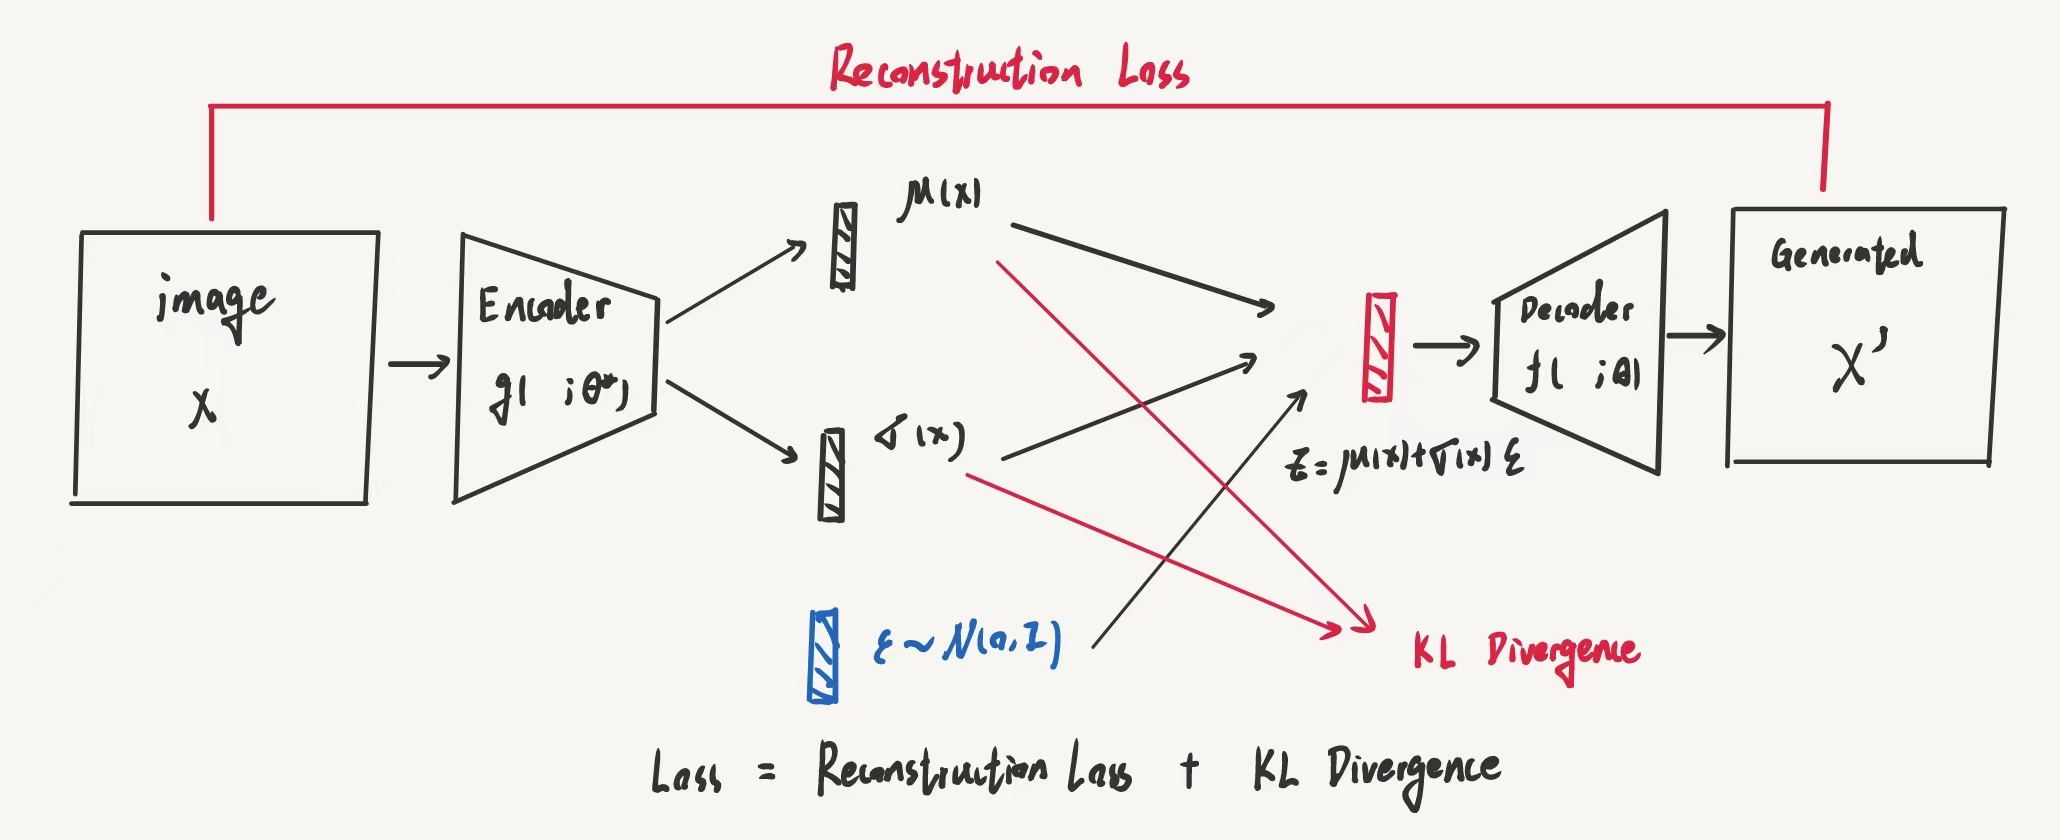 Reconstruction Loss
image
x
Encoder
g( ; θ*)
μ(x)
σ(x)
ε ~ N(0, I)
z = μ(x) + σ(x) ε
Decoder
f( ; θ)
Generated
x'
KL Divergence
Loss = Reconstruction Loss + KL Divergence